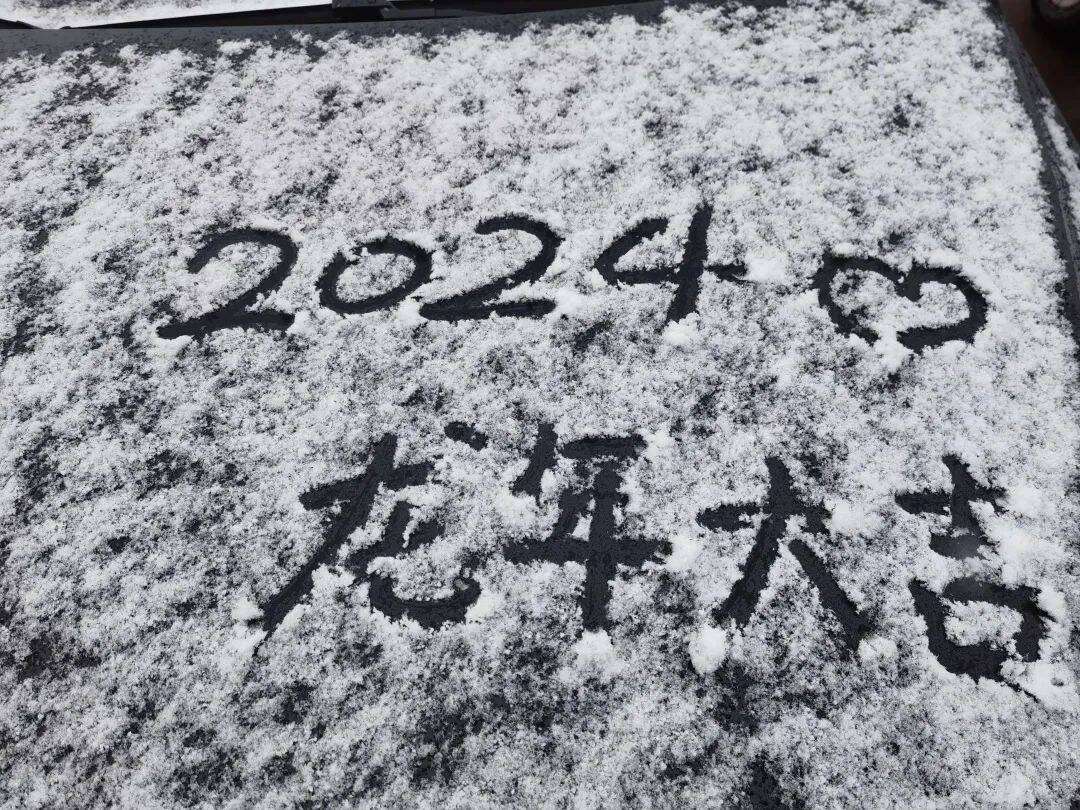 2024 ♡
龙年大吉